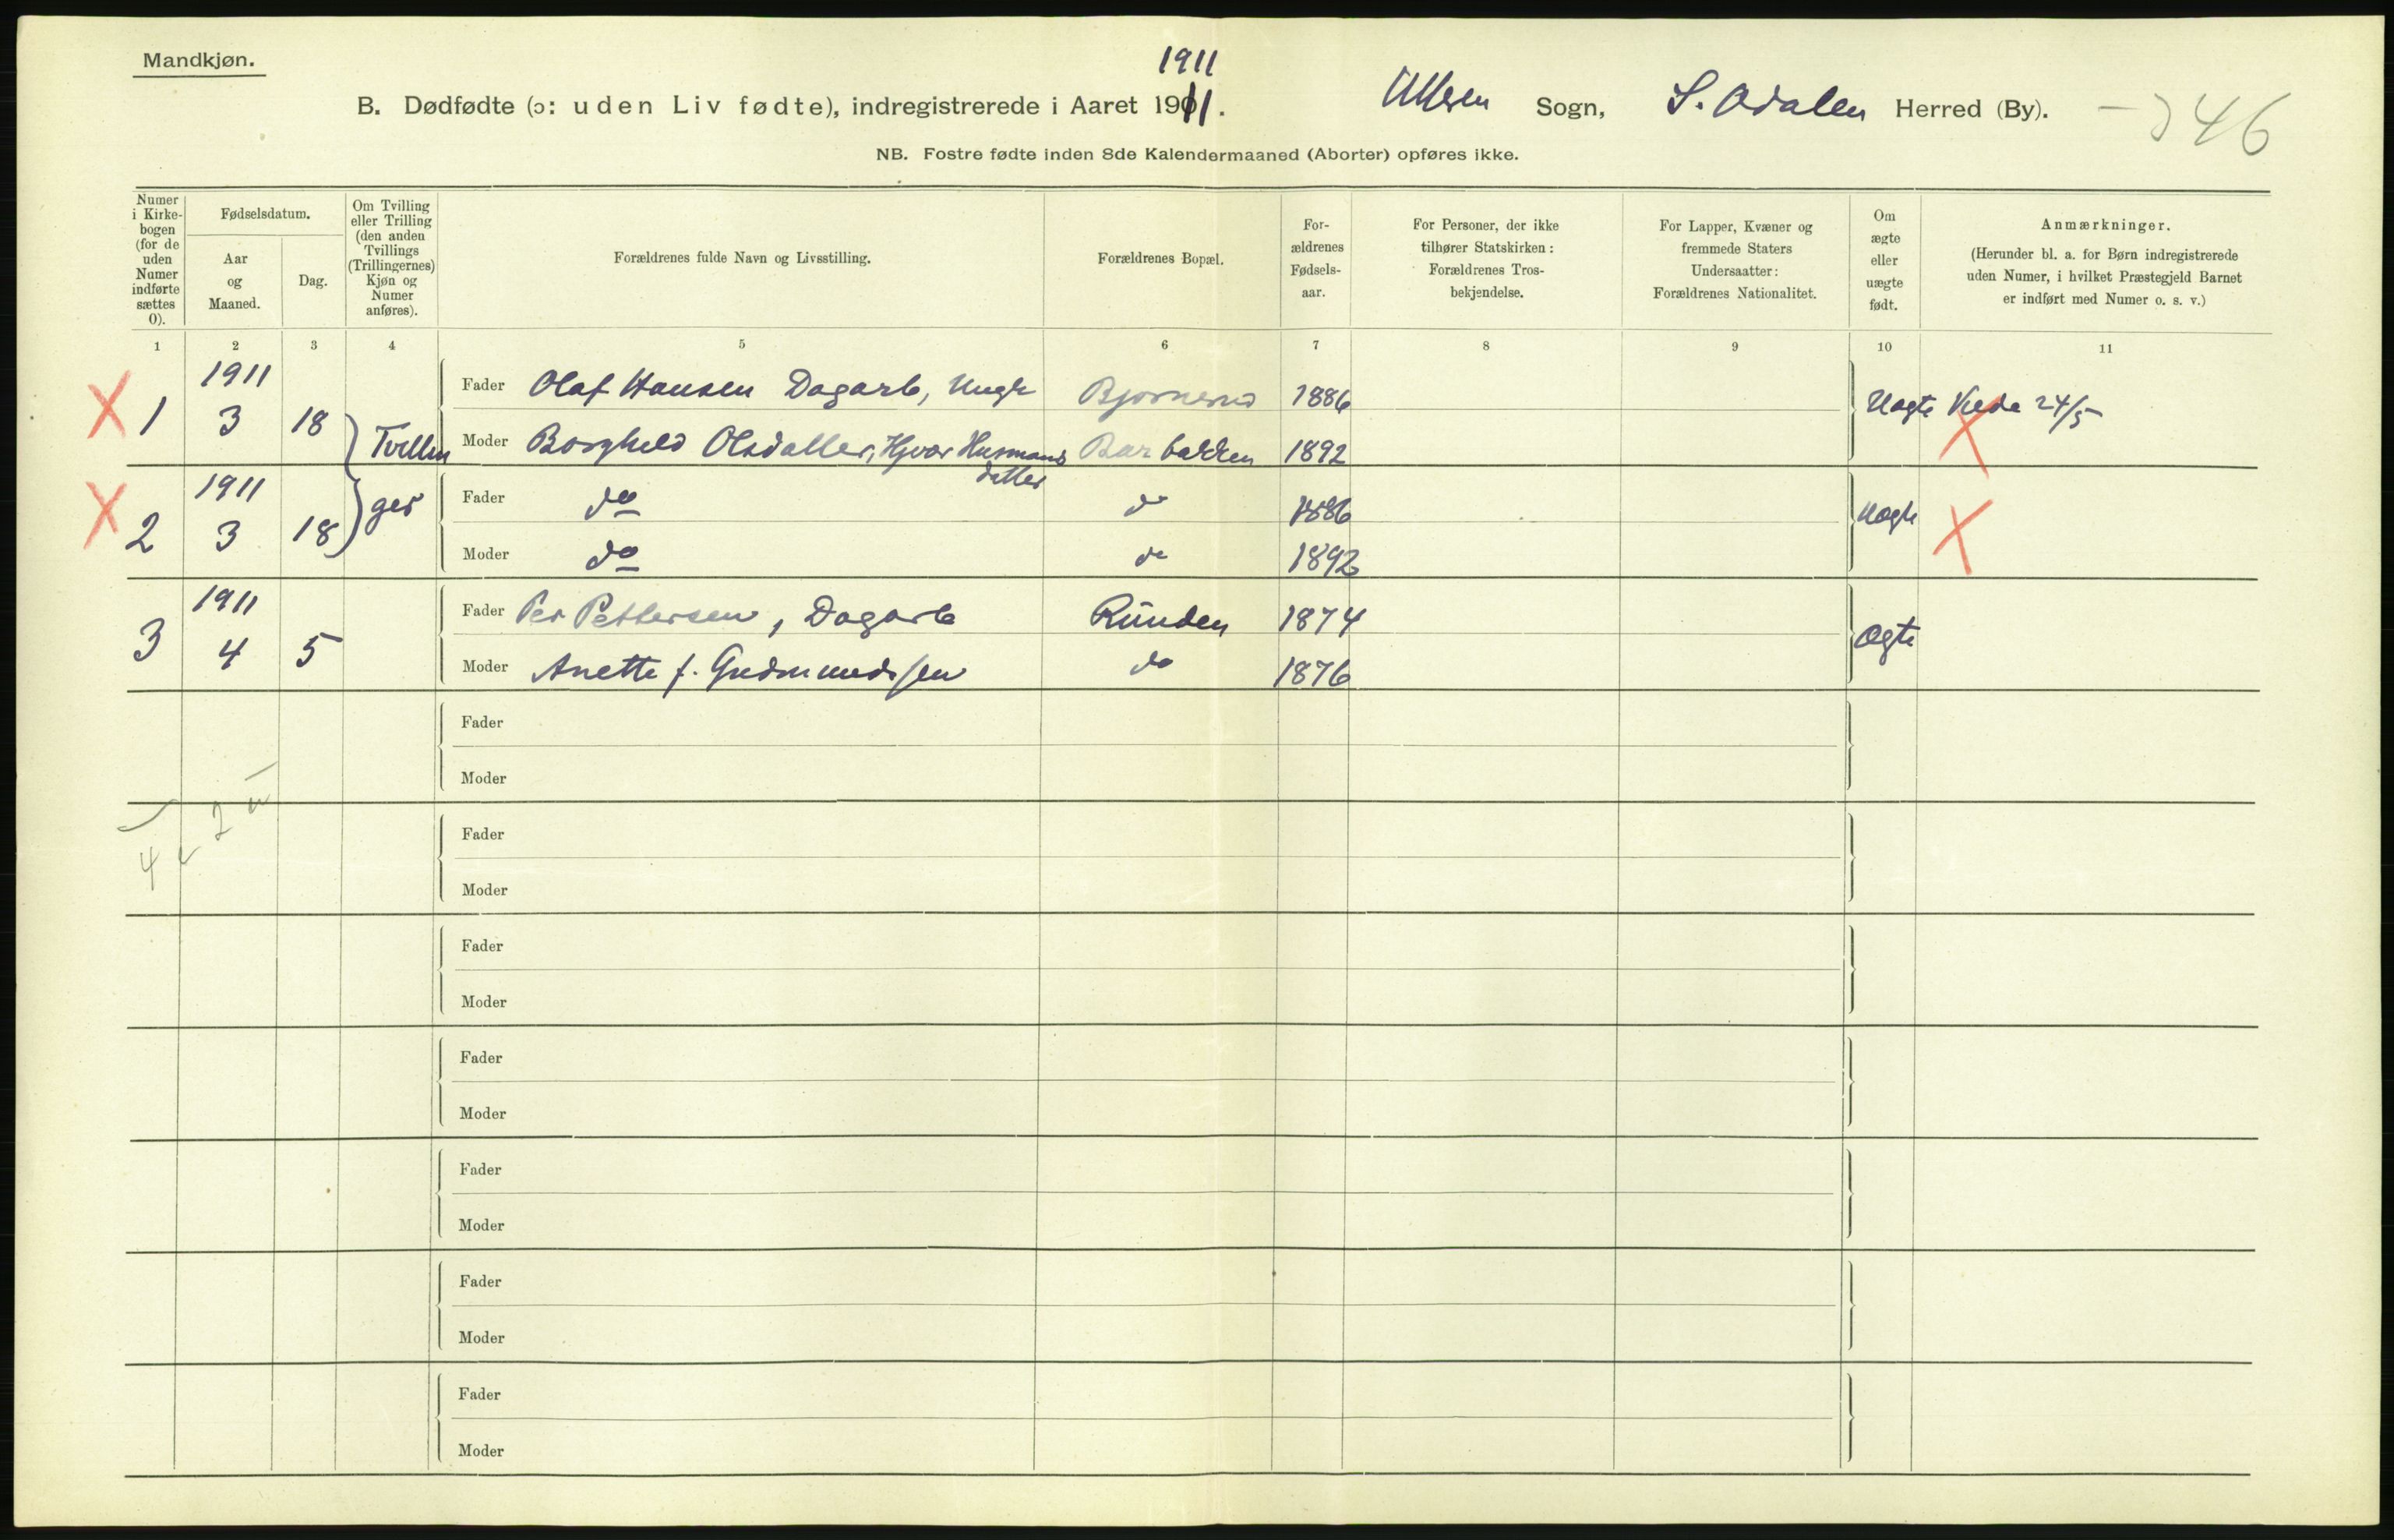 Mandkjøn.
1911
B. Dødfødte (ɔ: uden Liv fødte), indregistrerede i Aaret 1911. Ullern Sogn, S. Odalen Herred (By). 346
NB. Fostre fødte inden 8de Kalendermaaned (Aborter) opføres ikke.
Numer i Kirke-bogen (for de uden Numer indførte sættes 0).
Fødselsdatum.
Aar og Maaned.
Dag.
Om Tvilling eller Trilling (den anden Tvillings (Trillingernes) Kjøn og Numer anføres).
Forældrenes fulde Navn og Livsstilling.
Forældrenes Bopæl.
For-ældrenes Fødsels-aar.
For Personer, der ikke tilhører Statskirken: Forældrenes Tros-bekjendelse.
For Lapper, Kvæner og fremmede Staters Undersaatter: Forældrenes Nationalitet.
Om ægte eller uægte født.
Anmærkninger.
(Herunder bl. a. for Børn indregistrerede uden Numer, i hvilket Præstegjeld Barnet er indført med Numer o. s. v.)
1 2 3 4 5 6 7 8 9 10 11
1911
Fader Olaf Hansen Dagarb, Ungk Bjørnerud 1886
1 3 18 Uægte 24/5
Tvillin Moder Borghild Olsdatter, Hjvær Husmands Barbakken 1892
datter
1911
ger Fader do do 1886
2 3 18 Uægte
Moder do do 1892
1911
Fader Per Pettersen, Dagarb Runden 1874
3 4 5 Ægte
Moder Anette f. Gudmundsen do 1876
Fader
Moder
4
Fader
Moder
Fader
Moder
Fader
Moder
Fader
Moder
Fader
Moder
Fader
Moder